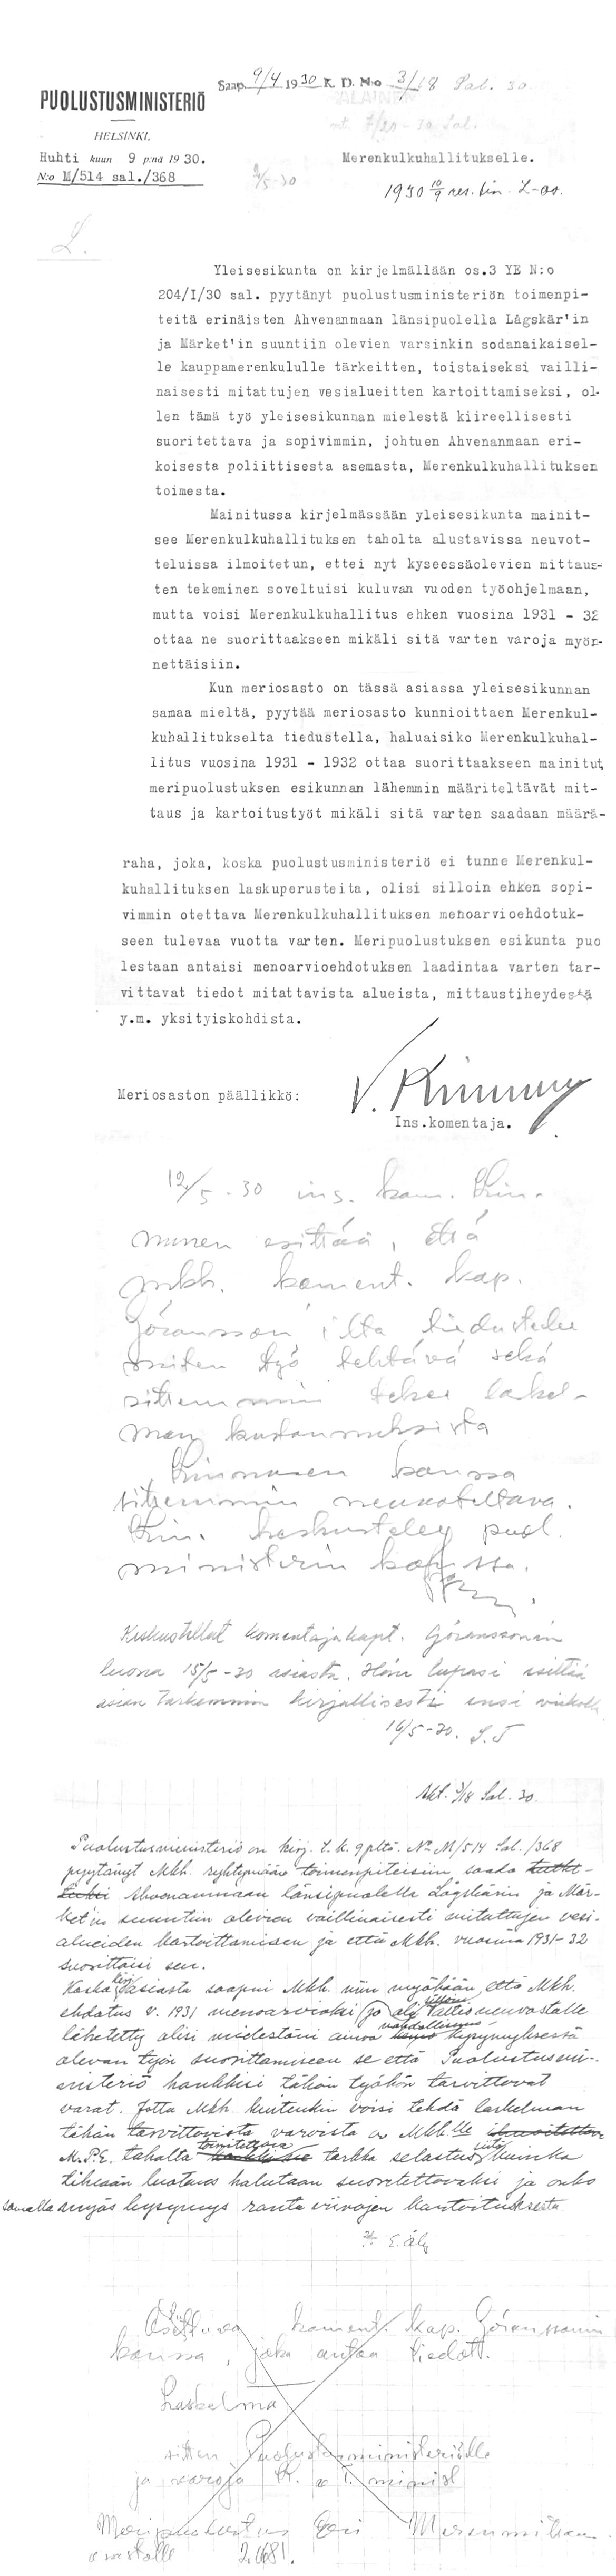 Saap. 9/4 1930 K. D. N:o 3/18 Sal. 30
PUOLUSTUSMINISTERIÖ
HELSINKI,
Huhti kuun 9 p:nä 1930.
Merenkulkuhallitukselle.
N:o M/514 sal./368
1930 10/9
L.
Yleisesikunta on kirjelmällään os.3 YE N:o
204/I/30 sal. pyytänyt puolustusministeriön toimenpi-
teitä erinäisten Ahvenanmaan länsipuolella Lågskär'in
ja Märket'in suuntiin olevien varsinkin sodanaikaisel-
le kauppamerenkululle tärkeitten, toistaiseksi vailli-
naisesti mitattujen vesialueitten kartoittamiseksi, ol-
len tämä työ yleisesikunnan mielestä kiireellisesti
suoritettava ja sopivimmin, johtuen Ahvenanmaan eri-
koisesta poliittisesta asemasta, Merenkulkuhallituksen
toimesta.
Mainitussa kirjelmässään yleisesikunta mainit-
see Merenkulkuhallituksen taholta alustavissa neuvot-
teluissa ilmoitetun, ettei nyt kyseessäolevien mittaus-
ten tekeminen soveltuisi kuluvan vuoden työohjelmaan,
mutta voisi Merenkulkuhallitus ehken vuosina 1931 - 32
ottaa ne suorittaakseen mikäli sitä varten varoja myön-
nettäisiin.
Kun meriosasto on tässä asiassa yleisesikunnan
samaa mieltä, pyytää meriosasto kunnioittaen Merenkul-
kuhallitukselta tiedustella, haluaisiko Merenkulkuhal-
litus vuosina 1931 - 1932 ottaa suorittaakseen mainitut,
meripuolustuksen esikunnan lähemmin määriteltävät mit-
taus ja kartoitustyöt mikäli sitä varten saadaan määrä-
raha, joka, koska puolustusministeriö ei tunne Merenkul-
kuhallituksen laskuperusteita, olisi silloin ehken sopi-
vimmin otettava Merenkulkuhallituksen menoarvioehdotuk-
seen tulevaa vuotta varten. Meripuolustuksen esikunta puo
lestaan antaisi menoarvioehdotuksen laadintaa varten tar-
vittavat tiedot mitattavista alueista, mittaustiheydestä
y.m. yksityiskohdista.
Meriosaston päällikkö:
Ins.komentaja.
12/5 - 30 ins. kom. Kin-
nunen esittää, että
mkh. koment. kap.
Göransson'ilta tiedustelee
miten työ tehtävä sekä
sittemmin tekee laskel-
man kustannuksista
Kinnusen kanssa
sittemmin neuvoteltava.
Kin. keskustelee puol.
ministerin kanssa.
Keskustellut komentajakapt. Göranssonin
luona 15/5-30 asiasta. Hän lupasi esittää
asian tarkemmin kirjallisesti ensi viikolla
16/5-30.
Akt. 3/18 Sal. 30.
Puolustusministeriö on kirj. t.k. 9 pltä. No M/514 Sal./368
pyytänyt Mkh. ryhtymään toimenpiteisiin saada
Ahvenanmaan länsipuolella Lågskärin ja Mär-
ket'in suuntiin olevien vaillinaisesti mitattujen vesi-
alueiden kartoittamisen ja että Mkh. vuosina 1931-32
suorittaisi sen.
Koska kirj. asiasta saapui Mkh. niin myöhään, että Mkh.
ehdotus v. 1931 menoarvioksi jo oli silloin valtioneuvostolle
lähetetty olisi mielestäni ainoa mahdollisuus kysymyksessä
olevan työn suorittamiseen se että Puolustusmi-
nisteriö hankkisi tähän työhön tarvittavat
varat. Jotta Mkh. kuitenkin voisi tehdä laskelman
tähän tarvittavista varoista on Mkh:lle
M.P.E. taholta toimitettava tarkka selostus siitä kuinka
tiheään luotaus halutaan suoritettavaksi ja onko
samalla myös kysymys ranta viivojen kartoituksesta
koment. kap. Göranssonin
kanssa, joka antaa tiedot.
Laskelma
sitten Puolustusministeriölle
ja varoja